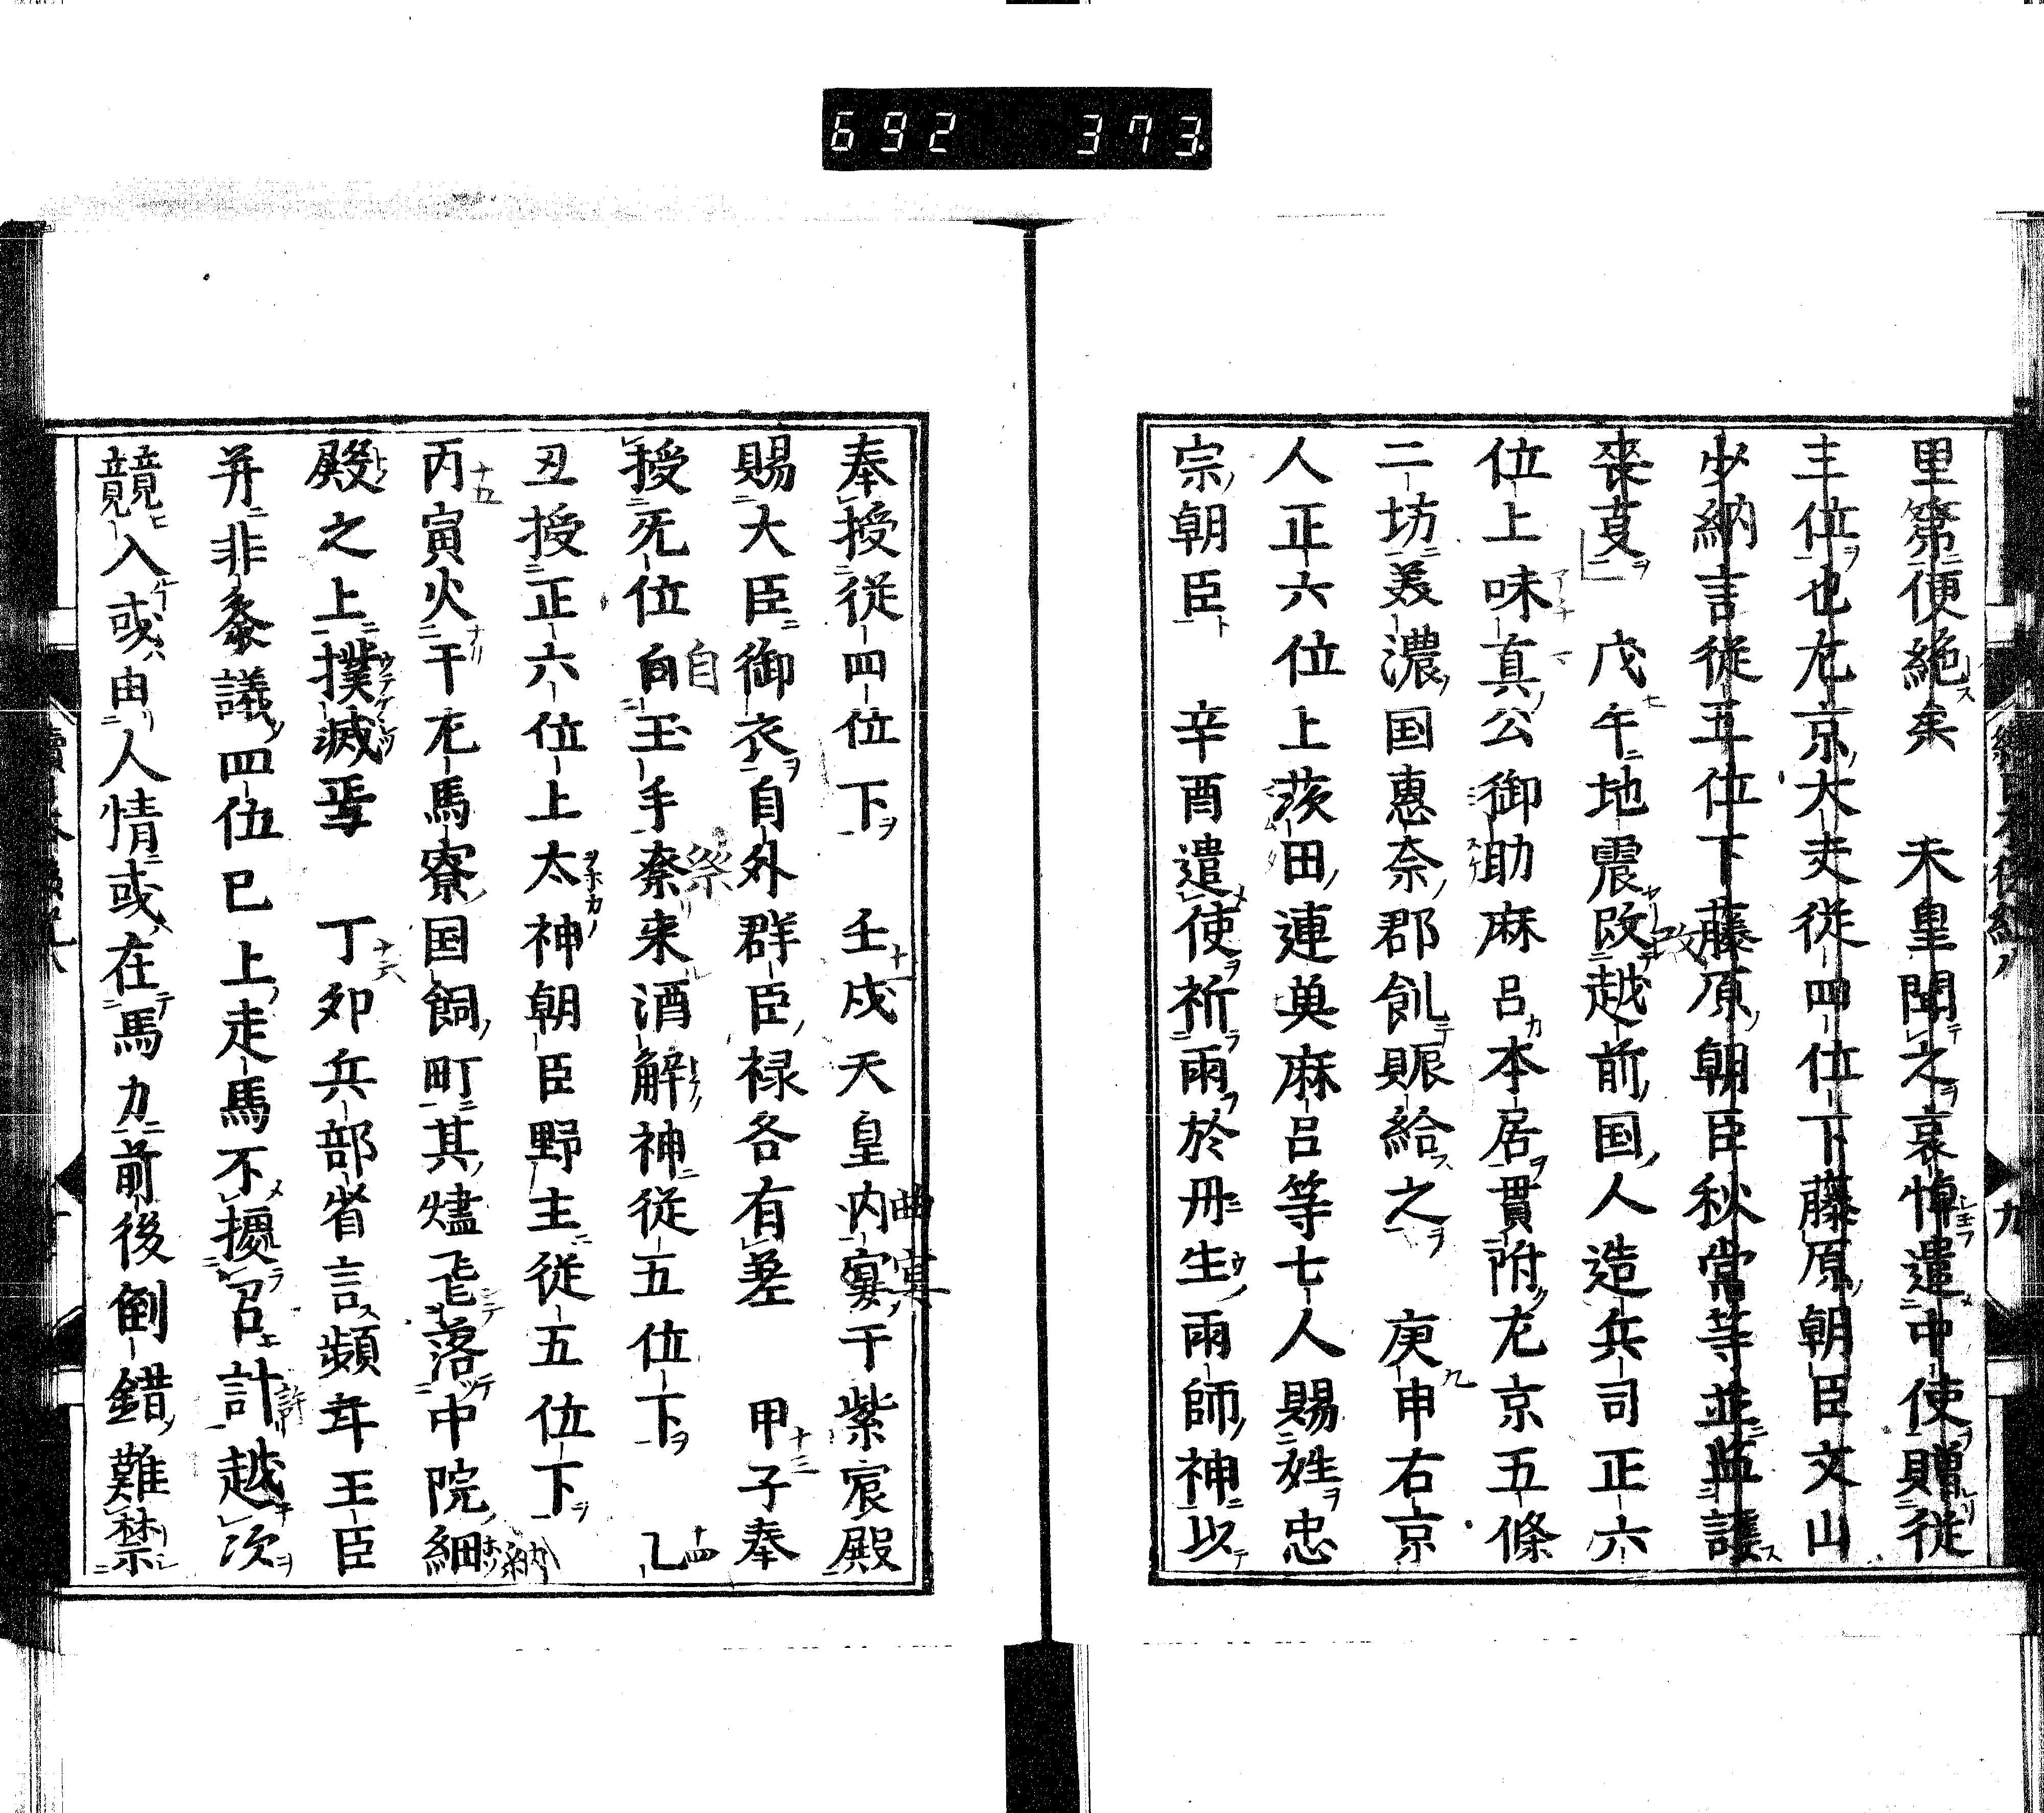 692 373
里第便絶矣 天皇聞之哀悼遣中使贈従
三位也左京大夫従四位下藤原朝臣文山
少納言従五位下藤原朝臣秋常等並監護
喪事 戊午地震改越前国人造兵司正六
位上味真公御助麻呂本居貫附左京五條
二坊美濃国恵奈郡飢賑給之 庚申右京
人正六位上茨田連萬麻呂等七人賜姓忠
宗朝臣 辛酉遣使祈雨於丹生雨師神以
奉授従四位下 壬戌天皇内宴于紫宸殿
賜大臣御衣自外群臣禄各有差 甲子奉
授无位自玉手祭来酒解神従五位下 乙
丑授正六位上太神朝臣野主従五位下
丙寅火于左馬寮国飼町其燼飛落中院細
殿之上撲滅焉 丁卯兵部省言頻年王臣
并非参議四位已上走馬不擾召計越次
競入或由人情或在馬力前後倒錯難禁